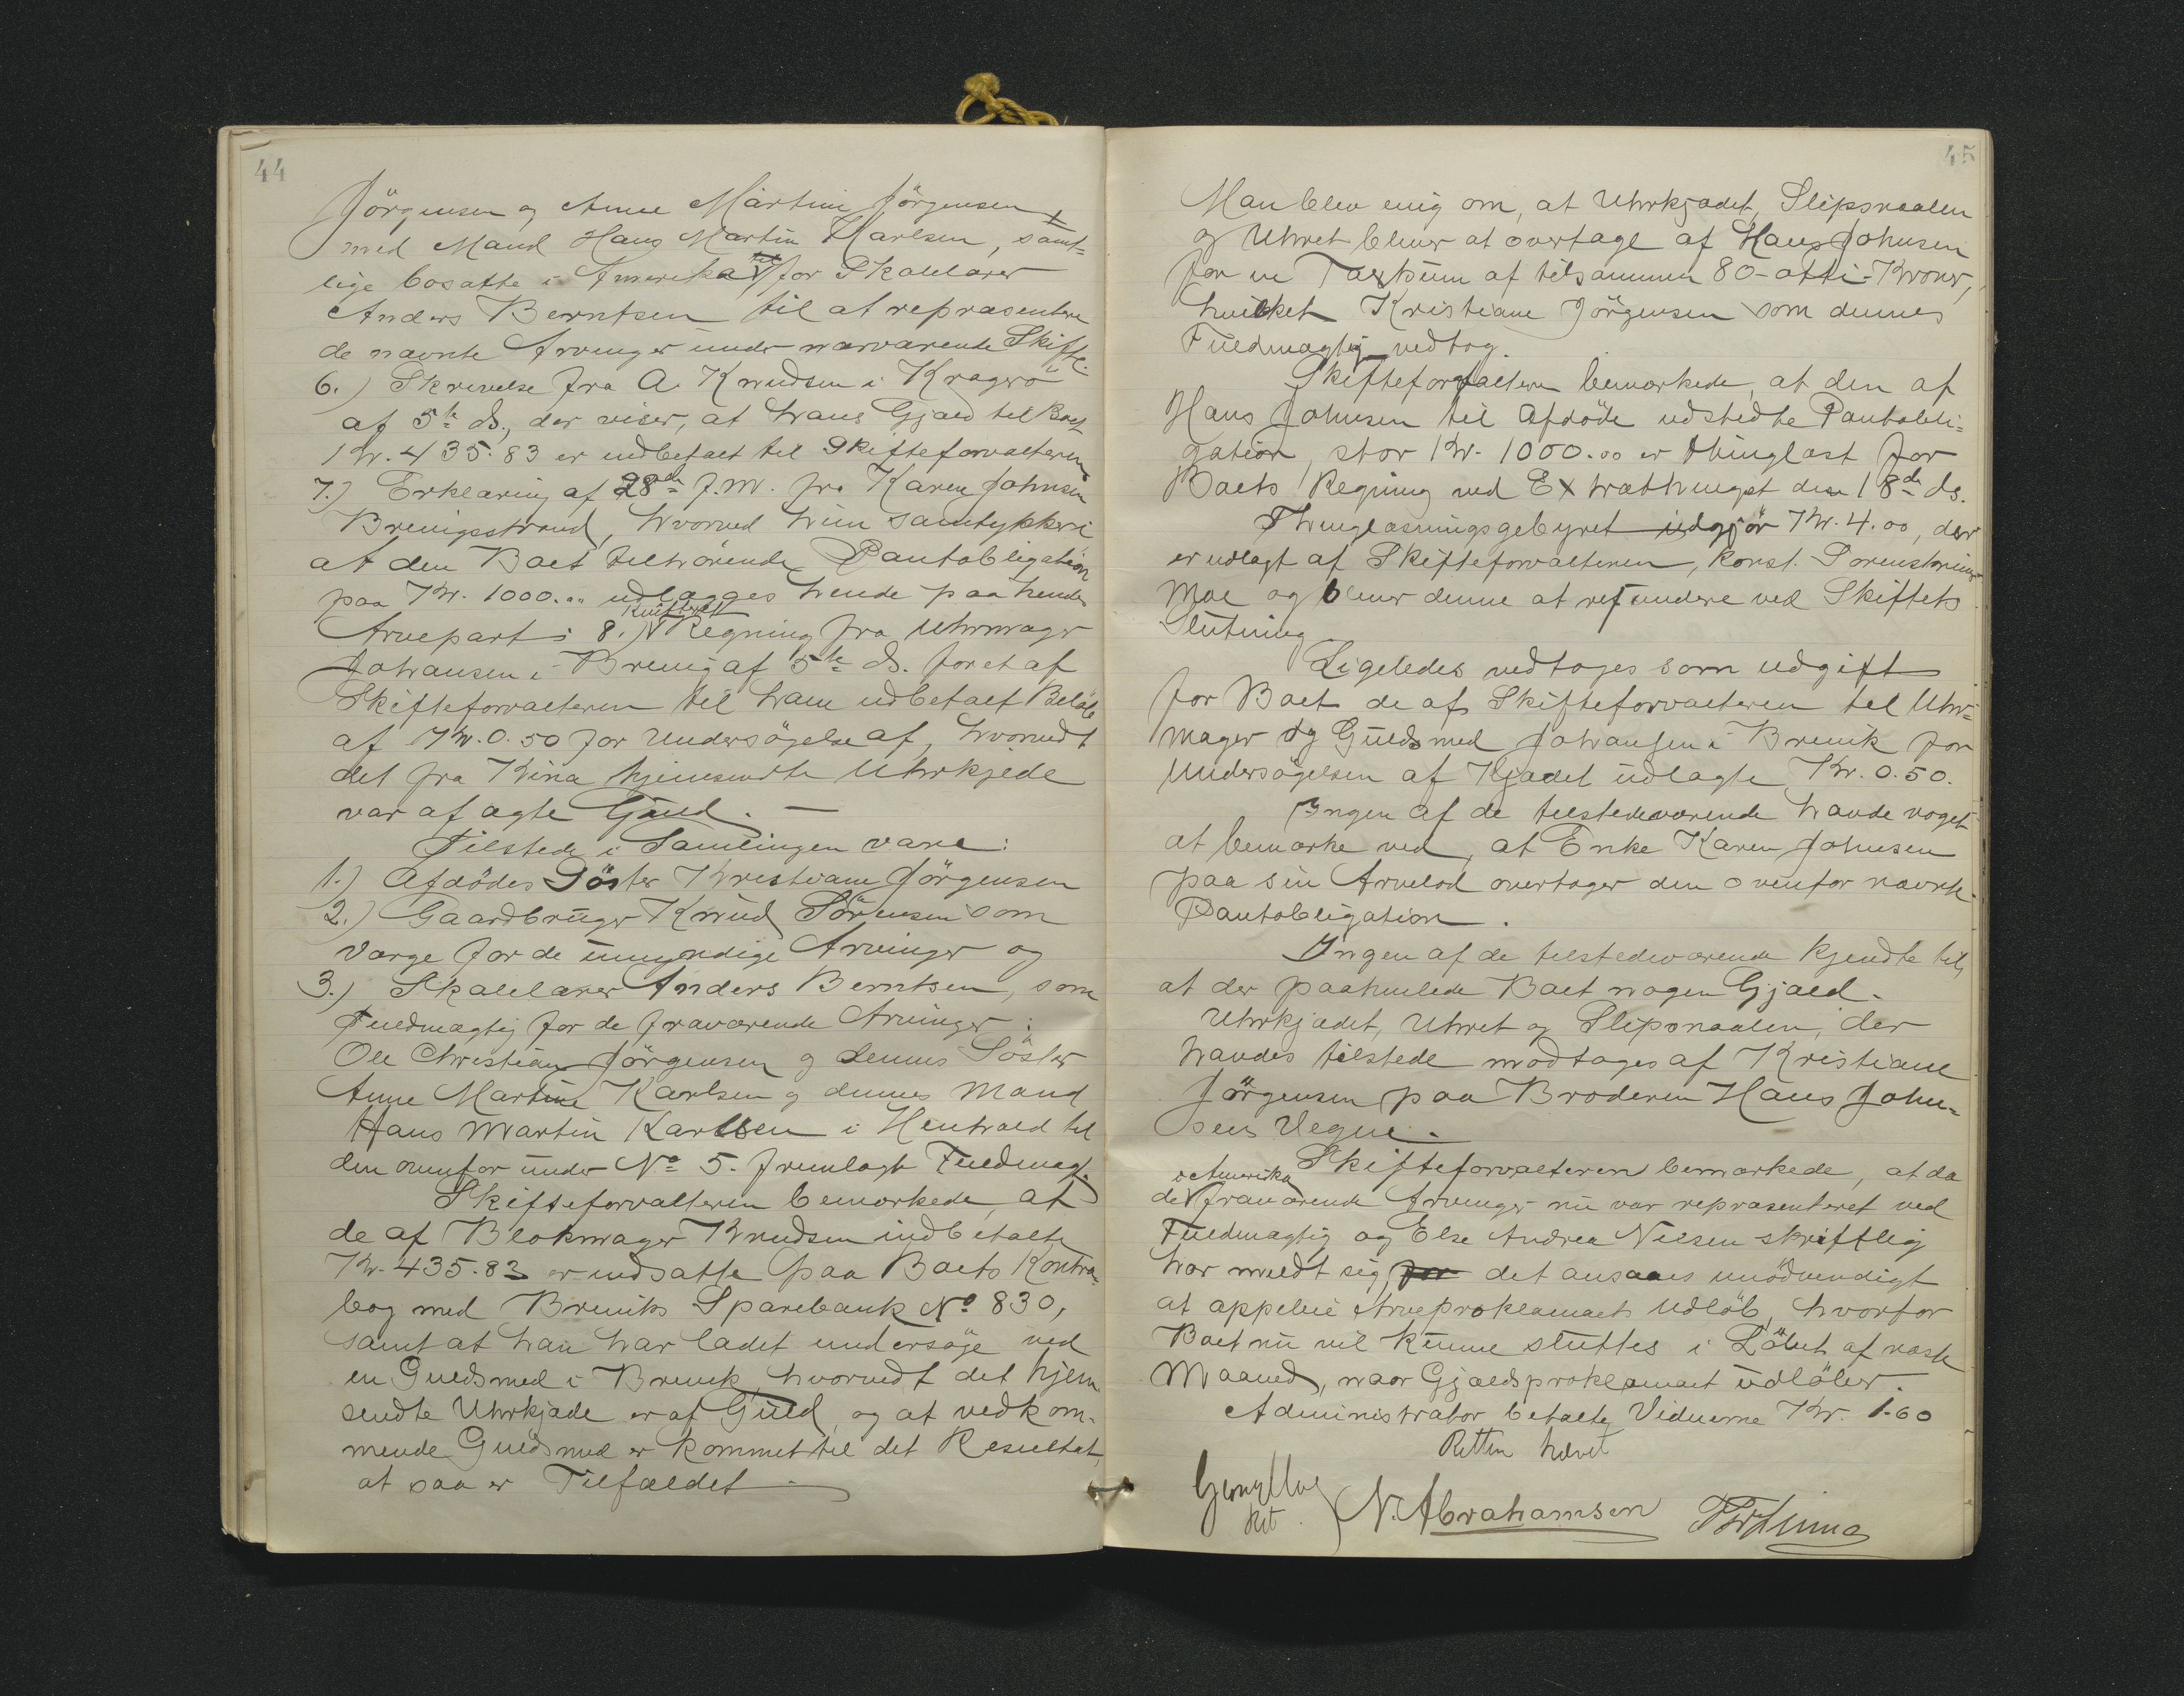 44
Jörgensen og Anne Martine Jörgensen
med Mand Hans Martin Karlsen, samt-
lige bosatte i Amerika for Skolelærer
Anders Berntsen til at repræsentere
de nævnte Arvinger under nærværende Skifte.
6.) Skrivelse fra A. Knudsen i Kragerö
af 5te ds., der viser, at hans Gjæld til Boet
Kr. 435.83 er indbetalt til Skifteforvalteren
7.) Erklæring af 28de f.M. fra Karen Johnsen
Brevigsstrand, hvorved hun samtykker i
at den Boet tilhörende Pantobligation
paa Kr. 1000.00 udlægges hende paa hendes
Arvepart; 8.) Kvitteret Regning fra Uhrmager
Johansen i Brevig af 5te ds. for et af
Skifteforvalteren til ham udbetalt Belöb
af Kr. 0.50 for Undersögelse af, hvorvidt
det fra Kina hjemsendte Uhrkjede
var af ægte Guld. —
Tilstede i Samlingen vare:
1.) Afdödes Söster Kristiane Jörgensen
2.) Gaardbruger Knud Sörensen som
Værge for de umyndige Arvinger og
3.) Skolelærer Anders Berntsen, som
Fuldmægtig for de fraværende Arvinger:
Ole Christian Jörgensen og dennes Söster
Anne Martine Karlsen og dennes Mand
Hans Martin Karlsen i Henhold til
den ovenfor under No 5. fremlagte Fuldmagt.
Skifteforvalteren bemærkede, at
de af Blokmager Knudsen indbetalte
Kr. 435.83 er indsatte paa Boets Kontra-
bog med Breviks Sparebank No 830,
samt at han har ladet undersöge ved
en Guldsmed i Brevik, hvorvidt det hjem
sendte Uhrkjæde er af Guld, og at vedkom-
mende Guldsmed er kommet til det Resultat,
at saa er Tilfældet
45
Man blev enig om, at Uhrkjædet, Slipsnaalen
og Uhret bliver at overtage af Hans Johnsen
for en Taxtsum af tilsammen 80-otti-Kroner,
hvilket Kristiane Jörgensen som dennes
Fuldmægtig vedtog.
Skifteforvalteren bemærkede, at den af
Hans Johnsen til Afdöde udstedte Pantobli-
gation, stor Kr. 1000.00 er thinglæst for
Boets Regning ved Extrathinget den 18de ds.
Thinglæsningsgebyret udgjör Kr. 4.00, der
er udlagt af Skifteforvalteren, konst. Sorenskriver
Moe og bliver denne at refundere ved Skiftets
Slutning
Ligeledes vedtoges som udgift
for Boet de af Skifteforvalteren til Uhr-
mager og Guldsmed Johansen i Brevik for
Undersögelsen af Kjædet udlagte Kr. 0.50.
Ingen af de tilstedeværende havde noget
at bemærke ved, at Enke Karen Johnsen
paa sin Arvelod overtager den ovenfor nævnte
Pantobligation.
Ingen af de tilstedeværende kjendte til,
at der paahvilede Boet nogen Gjæld.
Uhrkjædet, Uhret og Slipsnaalen, der
havdes tilstede modtoges af Kristiane
Jörgensen paa Broderen Hans John-
sens Vegne.
Skifteforvalteren bemærkede, at da
de i Amerika fraværende Arvinger nu var repræsenteret ved
Fuldmægtig og Else Andrea Nilsen skriftlig
har meldt sig, for det ansaaes unödvendigt
at oppebie Arveproklamaets Udlöb, hvorfor
Boet nu vil kunne sluttes i Löbet af næste
Maaned, naar Gjældsproklamaet udlöber.
Administrator betalte Vidnerne Kr. 1.60
Retten hævet
N. Abrahamsen